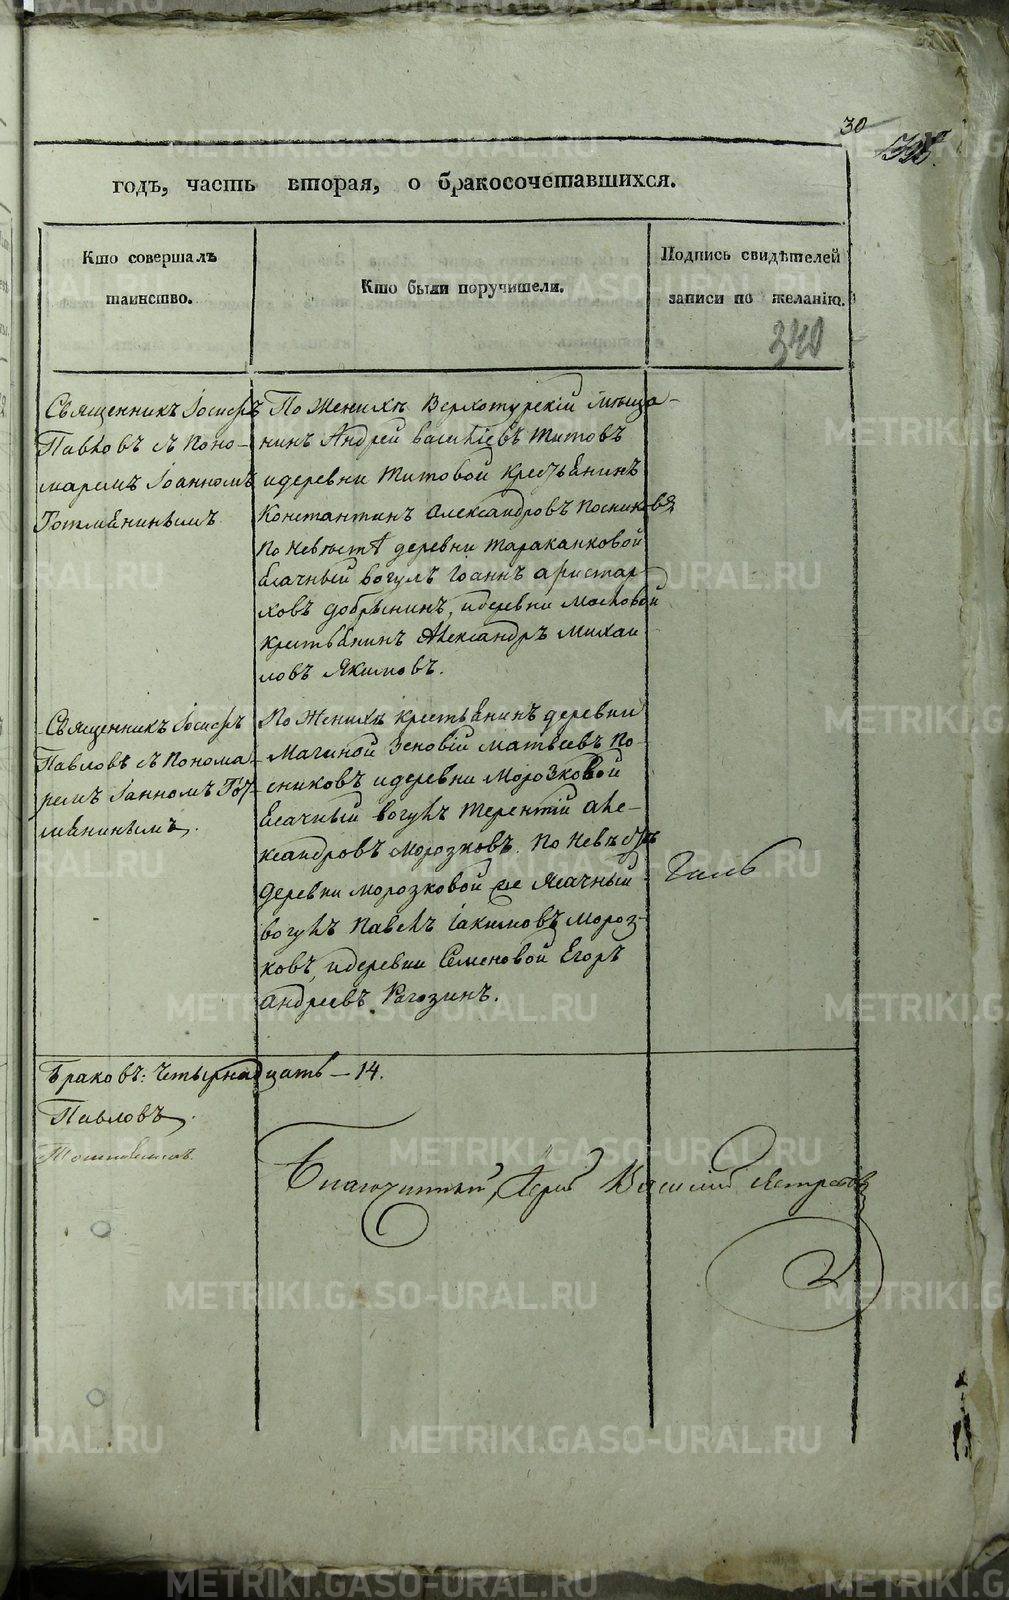 30
годъ, часть вторая, о бракосочетавшихся.
Кто совершалъ
таинство.
Кто были поручители.
Подпись свидѣтелей
записи по желанію.
340
Священникъ Іосифъ
Павловъ съ Поно-
маремъ Іоанномъ
По Женихѣ Верхотурскій мѣща-
нинъ Андрей Васильевъ Титовъ
и деревни Титовой крестьянинъ
Константинъ Александровъ Посниковъ
По Невѣстѣ деревни Тараканковой
ясачный вогулъ Іоаннъ Аристар-
ховъ Добрынинъ, и деревни Масловой
крестьянинъ Александръ Михаи-
ловъ Якимовъ.
Священникъ Іосифъ
Павловъ съ Понома-
ремъ Іанномъ Гот-
По Женихѣ крестьянинъ деревни
Матвѣевъ По-
сниковъ и деревни Морозковой
Ясачный вогулъ Терентій Але-
ксандровъ Морозковъ. По Невѣстѣ
деревни Морозковой Ясачный
вогулъ Павелъ Іакимовъ Мороз-
ковъ, и деревни Семеновой Егоръ
Андреевъ Рагозинъ.
Браковъ: Четырнадцать – 14.
Павловъ
Благочинный, Іерей Василій
METRIKI.GASO-URAL.RU